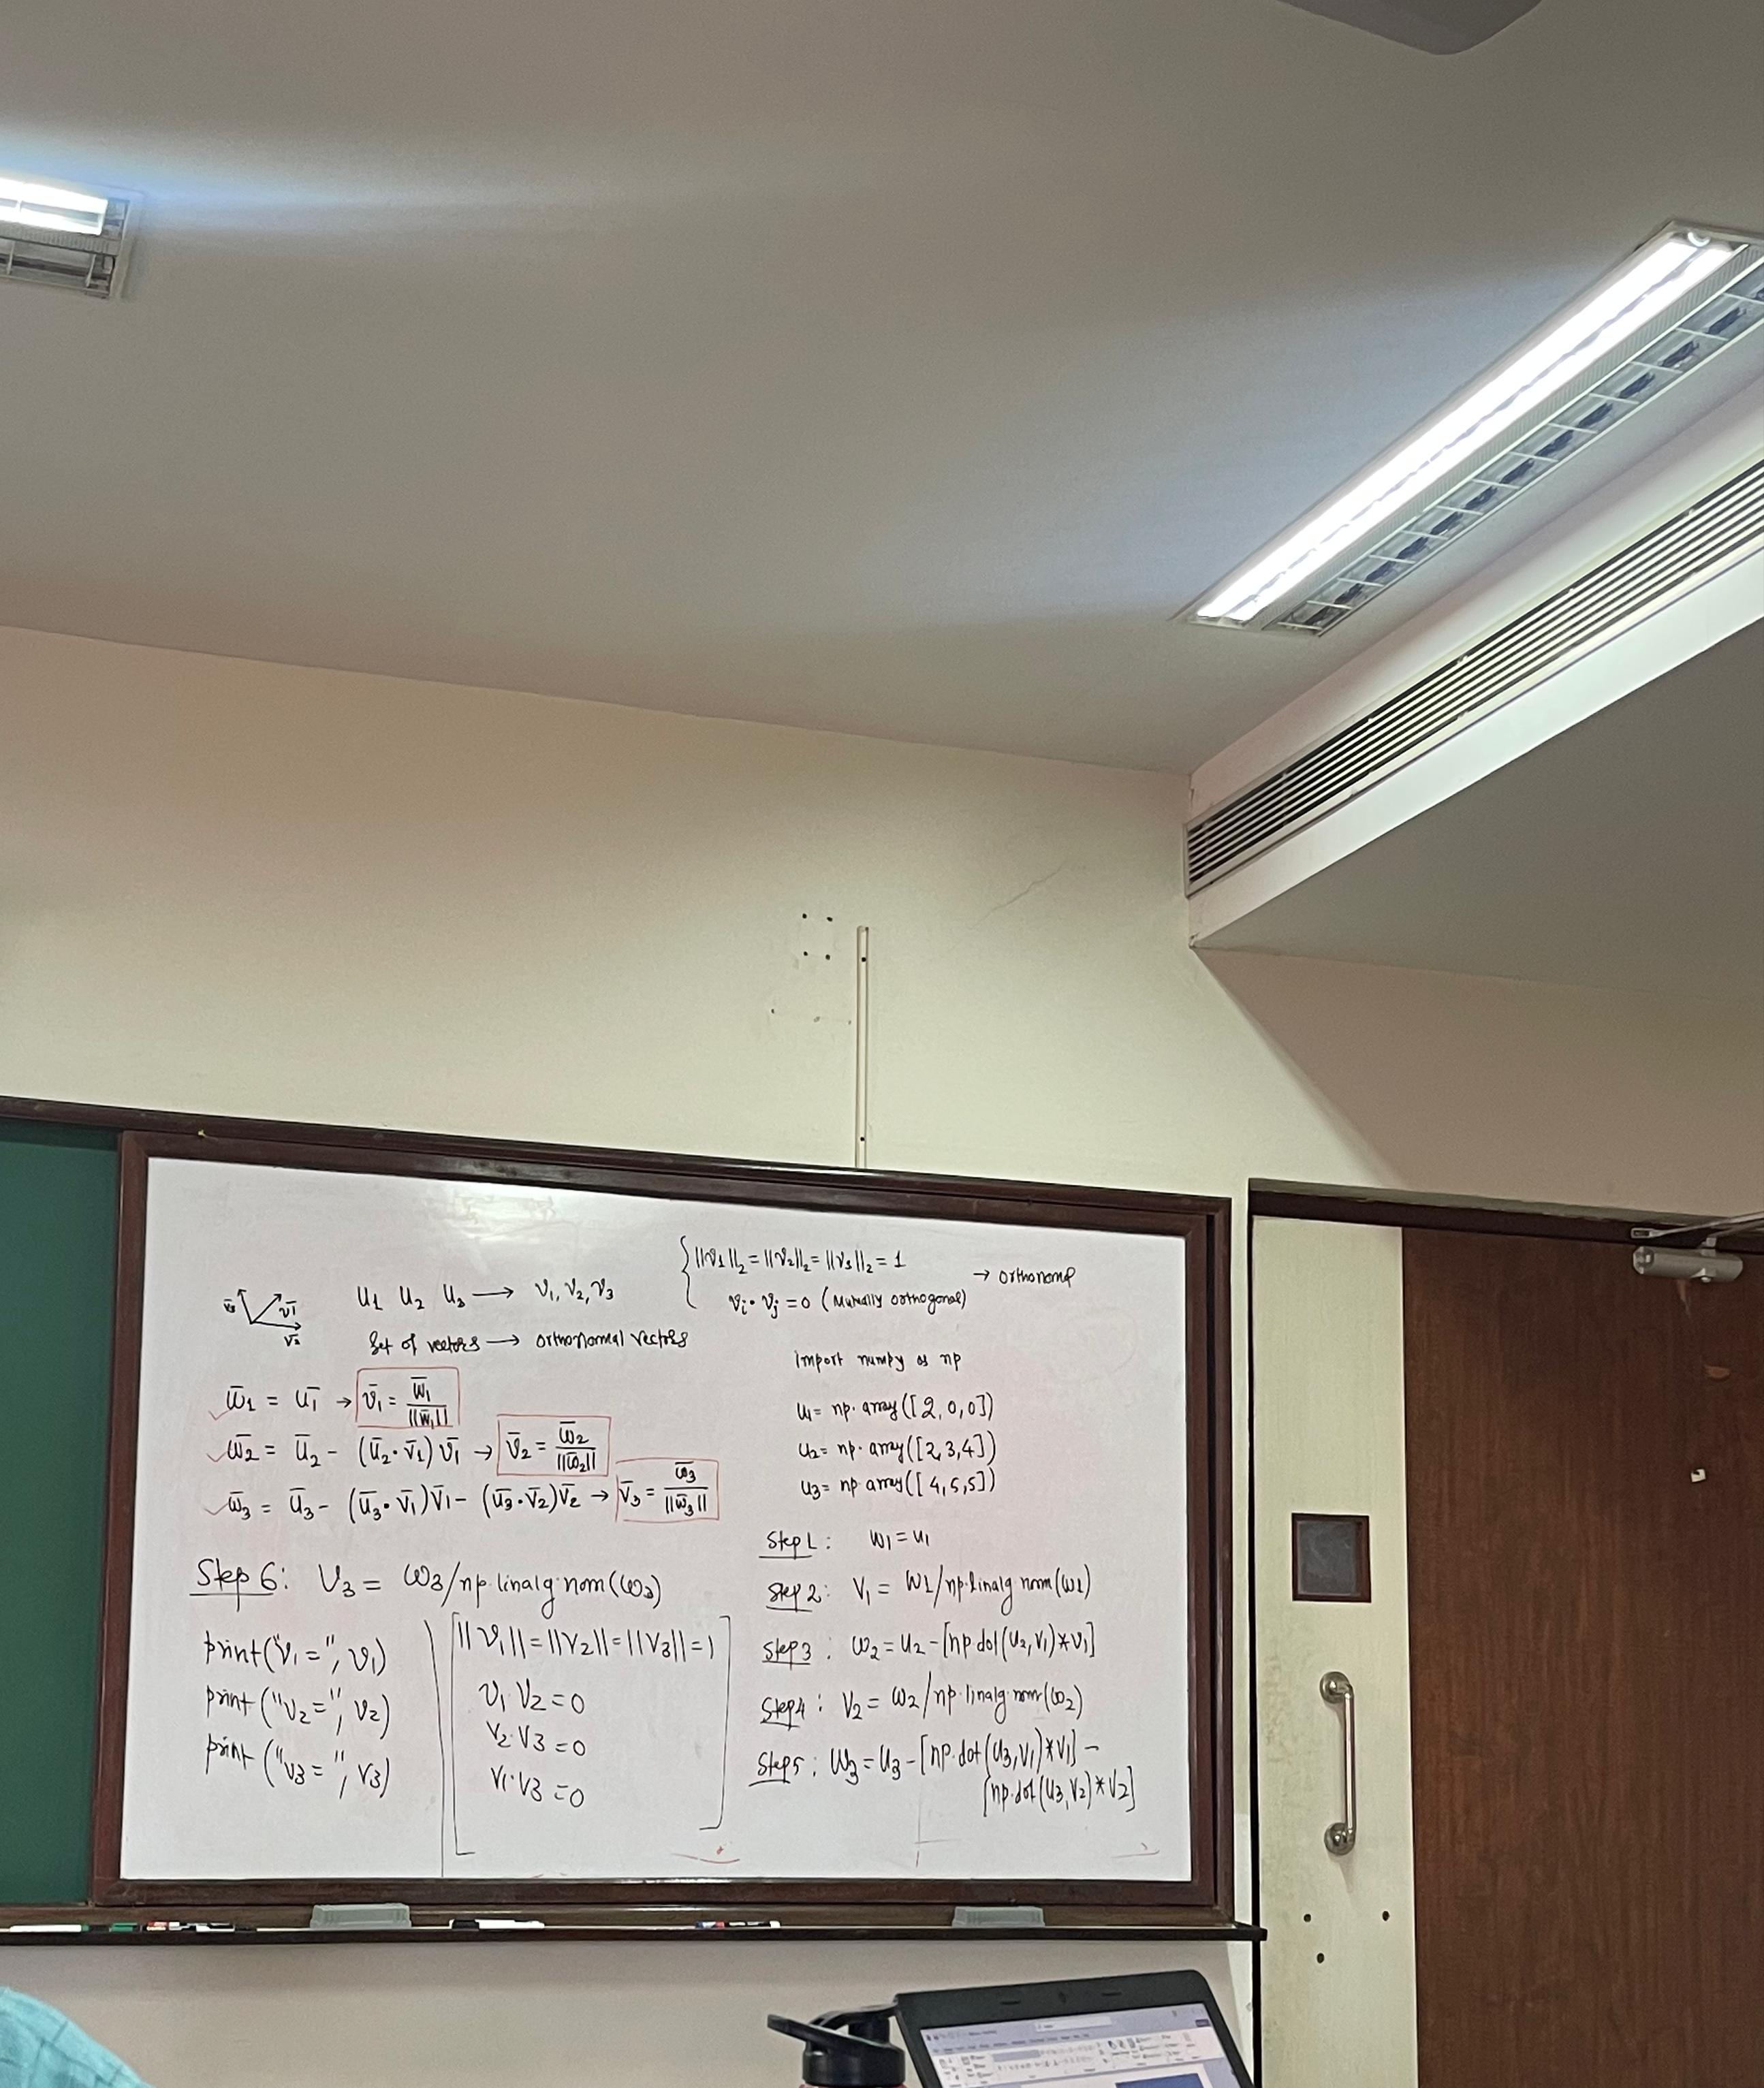 u1 u2 u3 → v1, v2, v3
Set of vectors → orthonormal vectors
{ ||v1||₂ = ||v2||₂ = ||v3||₂ = 1
vi · vj = 0 (Mutually orthogonal)
→ orthonomal
v̄3 v̄1
v̄2
w̄1 = ū1 → v̄1 = w̄1 / ||w̄1||
w̄2 = ū2 - (ū2 · v̄1) v̄1 → v̄2 = w̄2 / ||w̄2||
w̄3 = ū3 - (ū3 · v̄1) v̄1 - (ū3 · v̄2) v̄2 → v̄3 = w̄3 / ||w̄3||
Step 6: V3 = w3/np.linalg.nom(w3)
print("v1 = ", v1)
print("v2 = ", v2)
print("v3 = ", v3)
||v1|| = ||v2|| = ||v3|| = 1
v1 V2 = 0
v2·v3 = 0
v1·v3 = 0
import numpy as np
u1 = np.array([2,0,0])
u2 = np.array([2,3,4])
u3 = np.array([4,5,5])
Step 1: w1 = u1
Step 2: V1 = w1/np.linalg norm(w1)
Step 3: w2 = u2 - [np.dot(u2,v1)*v1]
Step 4: V2 = w2/np.linalg.norm(w2)
Step 5: w3 = u3 - [np.dot(u3,v1)*v1] -
[np.dot(u3,v2)*v2]